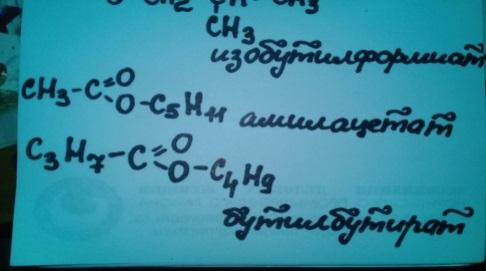 CH₃
изобутилформиат
CH₃-C=O
O-C₅H₁₁ амилацетат
C₃H₇-C=O
O-C₄H₉
бутилбутират